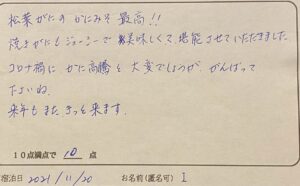 松葉がにの かにみそ 最高!!
焼きがにもジューシーで 美味しくて 堪能させていただきました。
コロナ禍に かに高騰と 大変でしょうが、がんばって
下さいね。
来年も また きっと 来ます。
10点満点で 10 点
宿泊日 2021/11/20 お名前(匿名可) I